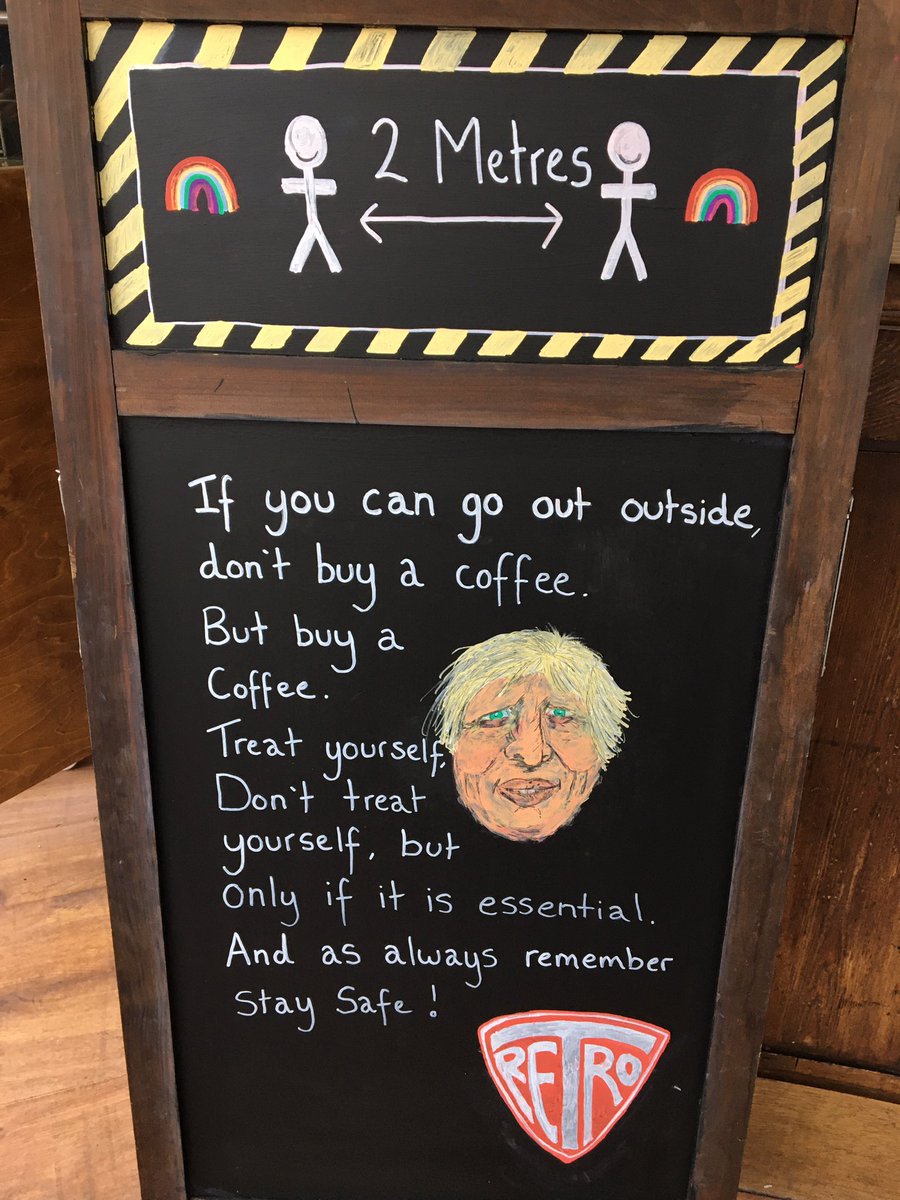 2 Metres
If you can go out outside,
don't buy a coffee.
But buy a
Coffee.
Treat yourself,
Don't treat
yourself, but
only if it is essential.
And as always remember
Stay Safe!
RETRO